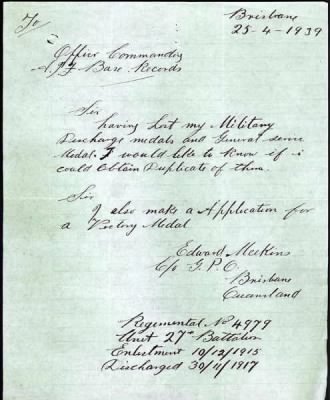 To
Brisbane
25-4-1939
Officer Commanding
A.I.F Base Records
Sir
having Lost my Military
Discharge medals and General service
Medal. I would like to Know if i
could Obtain Duplicate of them.
Sir
I also make a Application for
a Victory Medal
Edward Meekins
C/o G.P.O.
Brisbane
Queensland
Regimental No 4979
Unit 27th Battalion
Enlistment 10/12/1915
Discharged 30/11/1917